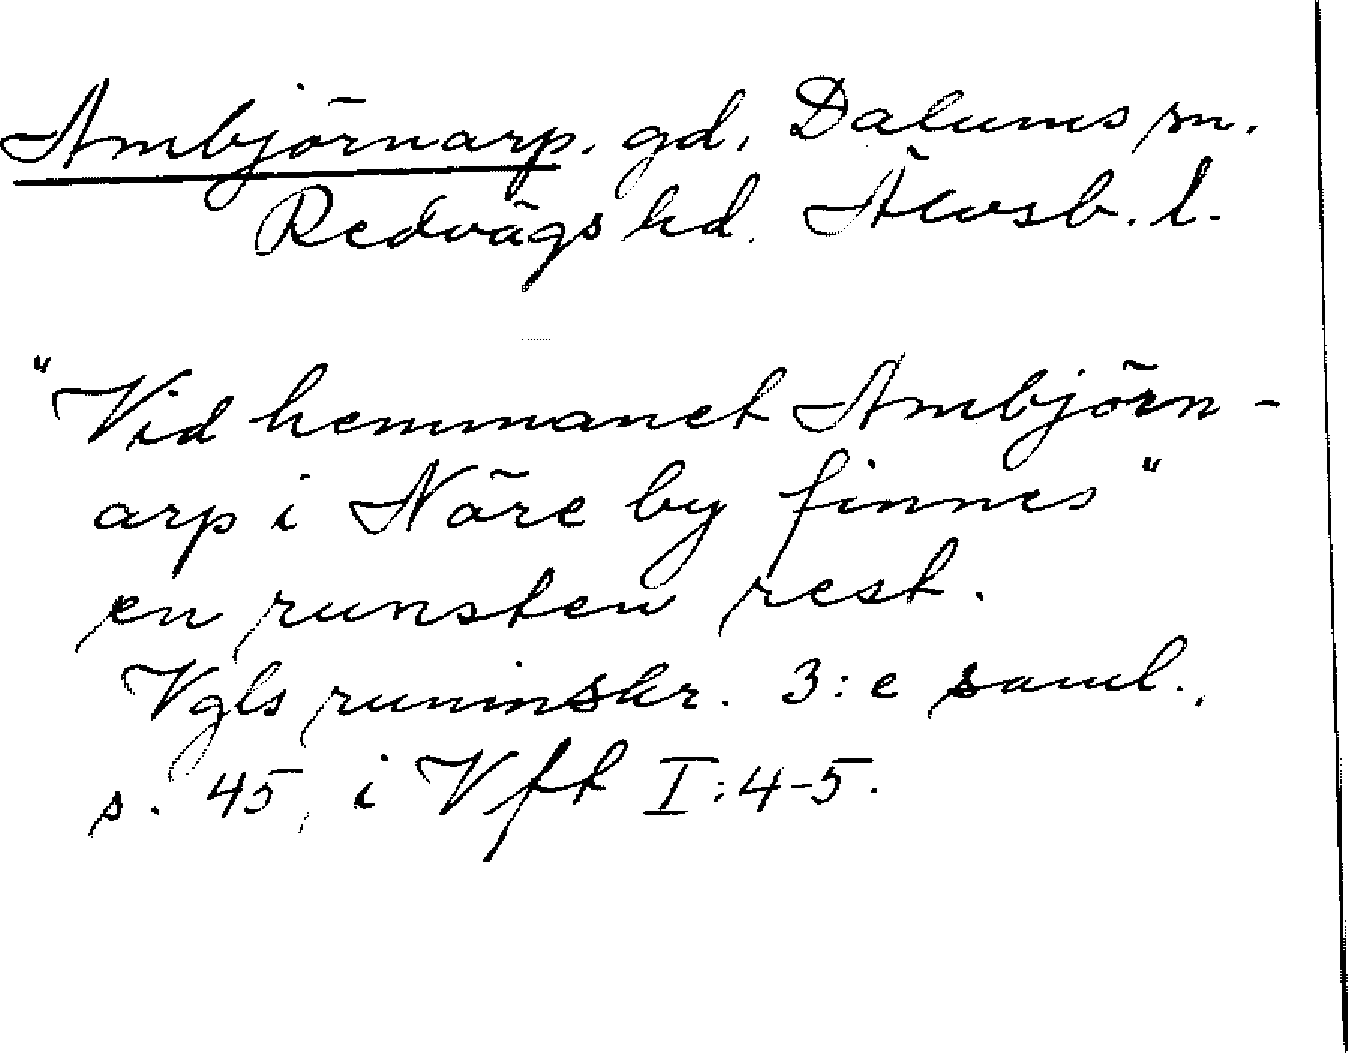 Ambjörnarp. gd, Dalums sn.
Redvägs hd. Älvsb. l.
"Vid hemmanet Ambjörn-
arp i Nöre by finnes"
en runsten rest.
Vgls runinskr. 3:e saml.,
s. 45, i Vft I:4-5.